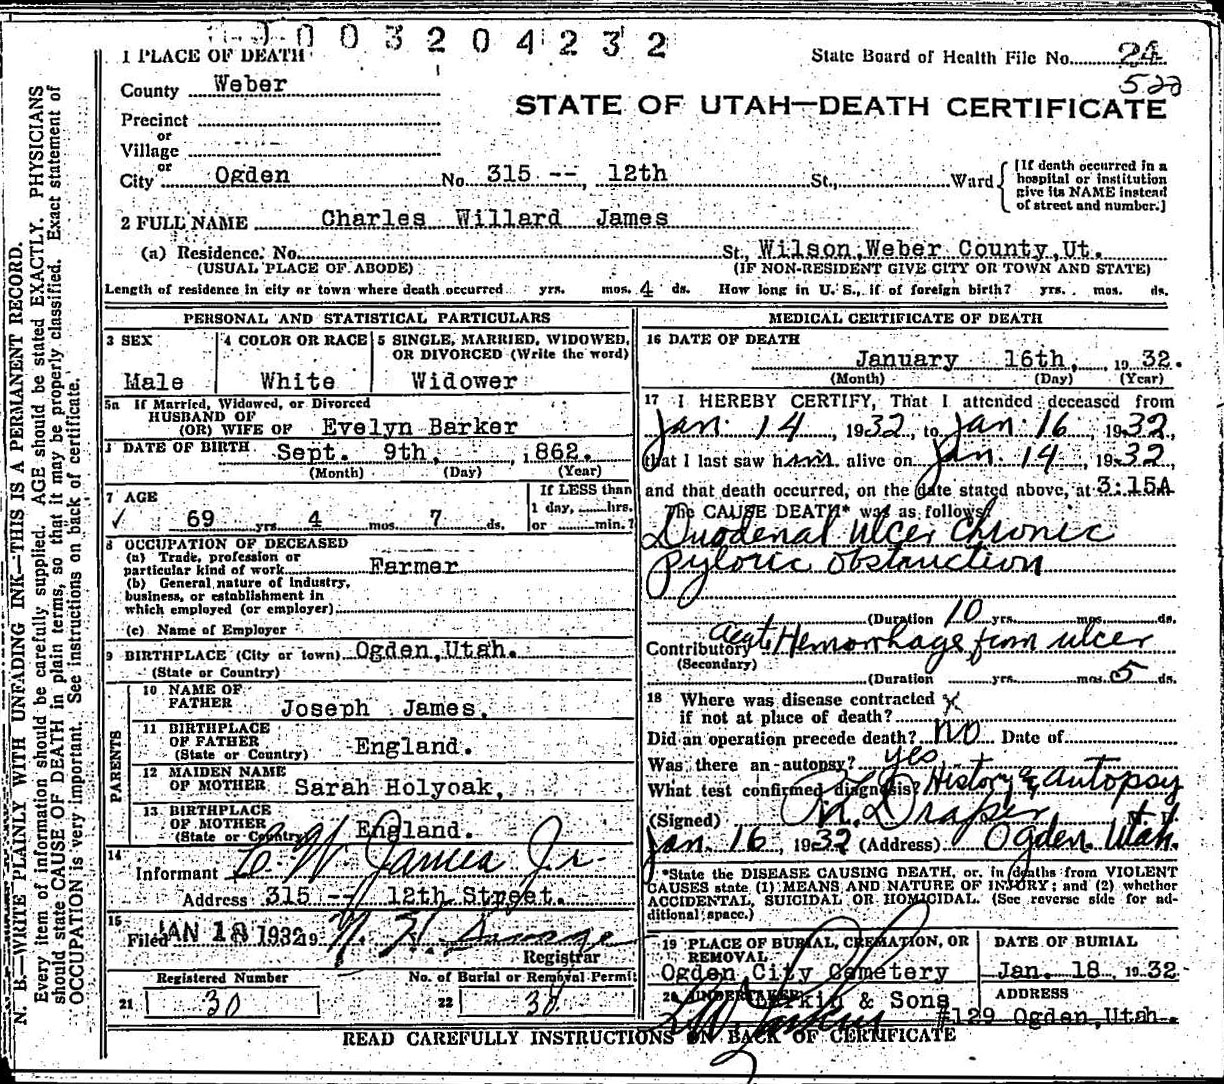 0003204232
1 PLACE OF DEATH
State Board of Health File No. 24
County Weber
522
STATE OF UTAH—DEATH CERTIFICATE
Precinct
or
Village
or
City Ogden No. 315 -- 12th St., Ward
[If death occurred in a
hospital or institution
give its NAME instead
of street and number.]
2 FULL NAME Charles Willard James
(a) Residence. No. St., Wilson,Weber County,Ut.
(USUAL PLACE OF ABODE) (IF NON-RESIDENT GIVE CITY OR TOWN AND STATE)
Length of residence in city or town where death occurred yrs. mos. 4 ds. How long in U. S., if of foreign birth? yrs. mos. ds.
PERSONAL AND STATISTICAL PARTICULARS
3 SEX
Male
4 COLOR OR RACE
White
5 SINGLE, MARRIED, WIDOWED,
OR DIVORCED (Write the word)
Widower
5a If Married, Widowed, or Divorced
HUSBAND OF
(OR) WIFE OF Evelyn Barker
DATE OF BIRTH Sept. 9th, 1862.
(Month) (Day) (Year)
7 AGE
69 yrs. 4 mos. 7 ds.
If LESS than
1 day, hrs.
or min.?
8 OCCUPATION OF DECEASED
(a) Trade, profession or
particular kind of work Farmer
(b) General nature of industry,
business, or establishment in
which employed (or employer)
(c) Name of Employer
9 BIRTHPLACE (City or town) Ogden,Utah.
(State or Country)
PARENTS
10 NAME OF
FATHER Joseph James.
11 BIRTHPLACE
OF FATHER England.
(State or Country)
12 MAIDEN NAME
OF MOTHER Sarah Holyoak,
13 BIRTHPLACE
OF MOTHER England.
(State or Country)
14
Informant C W James Jr.
Address 315 -- 12th Street.
15
Filed JAN 18 1932 19
Registrar
Registered Number
21 30
No. of Burial or Removal Permit
22 30
MEDICAL CERTIFICATE OF DEATH
16 DATE OF DEATH
January 16th, 1932.
(Month) (Day) (Year)
17 I HEREBY CERTIFY, That I attended deceased from
Jan. 14, 1932, to Jan. 16, 1932,
that I last saw him alive on Jan. 14, 1932,
and that death occurred, on the date stated above, at 3:15A
The CAUSE DEATH* was as follows:
Duodenal ulcer chronic
Pyloric obstruction
(Duration 10 yrs. mos. ds.
Contributory Acute Hemorrhage from ulcer
(Secondary)
(Duration yrs. mos. 5 ds.
18 Where was disease contracted
if not at place of death? x
Did an operation precede death? no Date of
Was there an autopsy? yes
What test confirmed diagnosis? History & autopsy
(Signed) Draper
Jan. 16, 1932 (Address) Ogden. Utah.
*State the DISEASE CAUSING DEATH, or, in deaths from VIOLENT
CAUSES state (1) MEANS AND NATURE OF INJURY; and (2) whether
ACCIDENTAL, SUICIDAL OR HOMICIDAL. (See reverse side for ad-
ditional space.)
19 PLACE OF BURIAL, CREMATION, OR
REMOVAL
Ogden City Cemetery
DATE OF BURIAL
Jan. 18 1932
20 UNDERTAKER
Larkin & Sons
ADDRESS
#129 Ogden,Utah.
READ CAREFULLY INSTRUCTIONS ON BACK OF CERTIFICATE
N. B.—WRITE PLAINLY WITH UNFADING INK—THIS IS A PERMANENT RECORD.
Every item of information should be carefully supplied. AGE should be stated EXACTLY. PHYSICIANS
should state CAUSE OF DEATH in plain terms, so that it may be properly classified. Exact statement of
OCCUPATION is very important. See instructions on back of certificate.